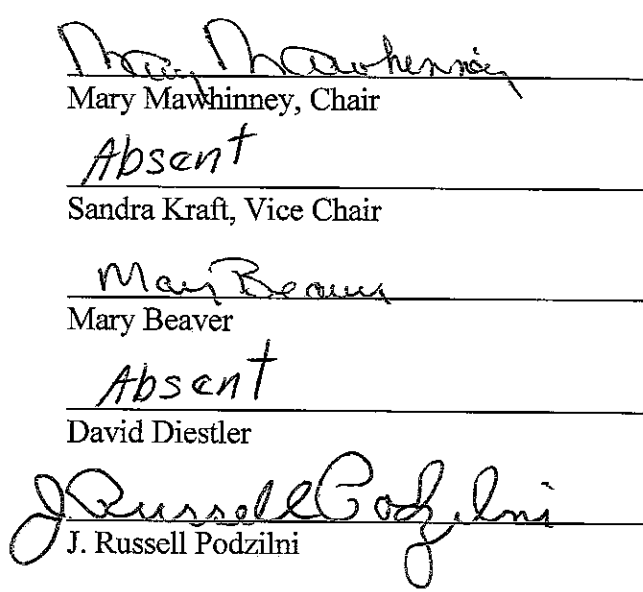 Mary Mawhinney
Mary Mawhinney, Chair
Absent
Sandra Kraft, Vice Chair
Mary Beaver
Mary Beaver
Absent
David Diestler
J. Russell Podzilni
J. Russell Podzilni